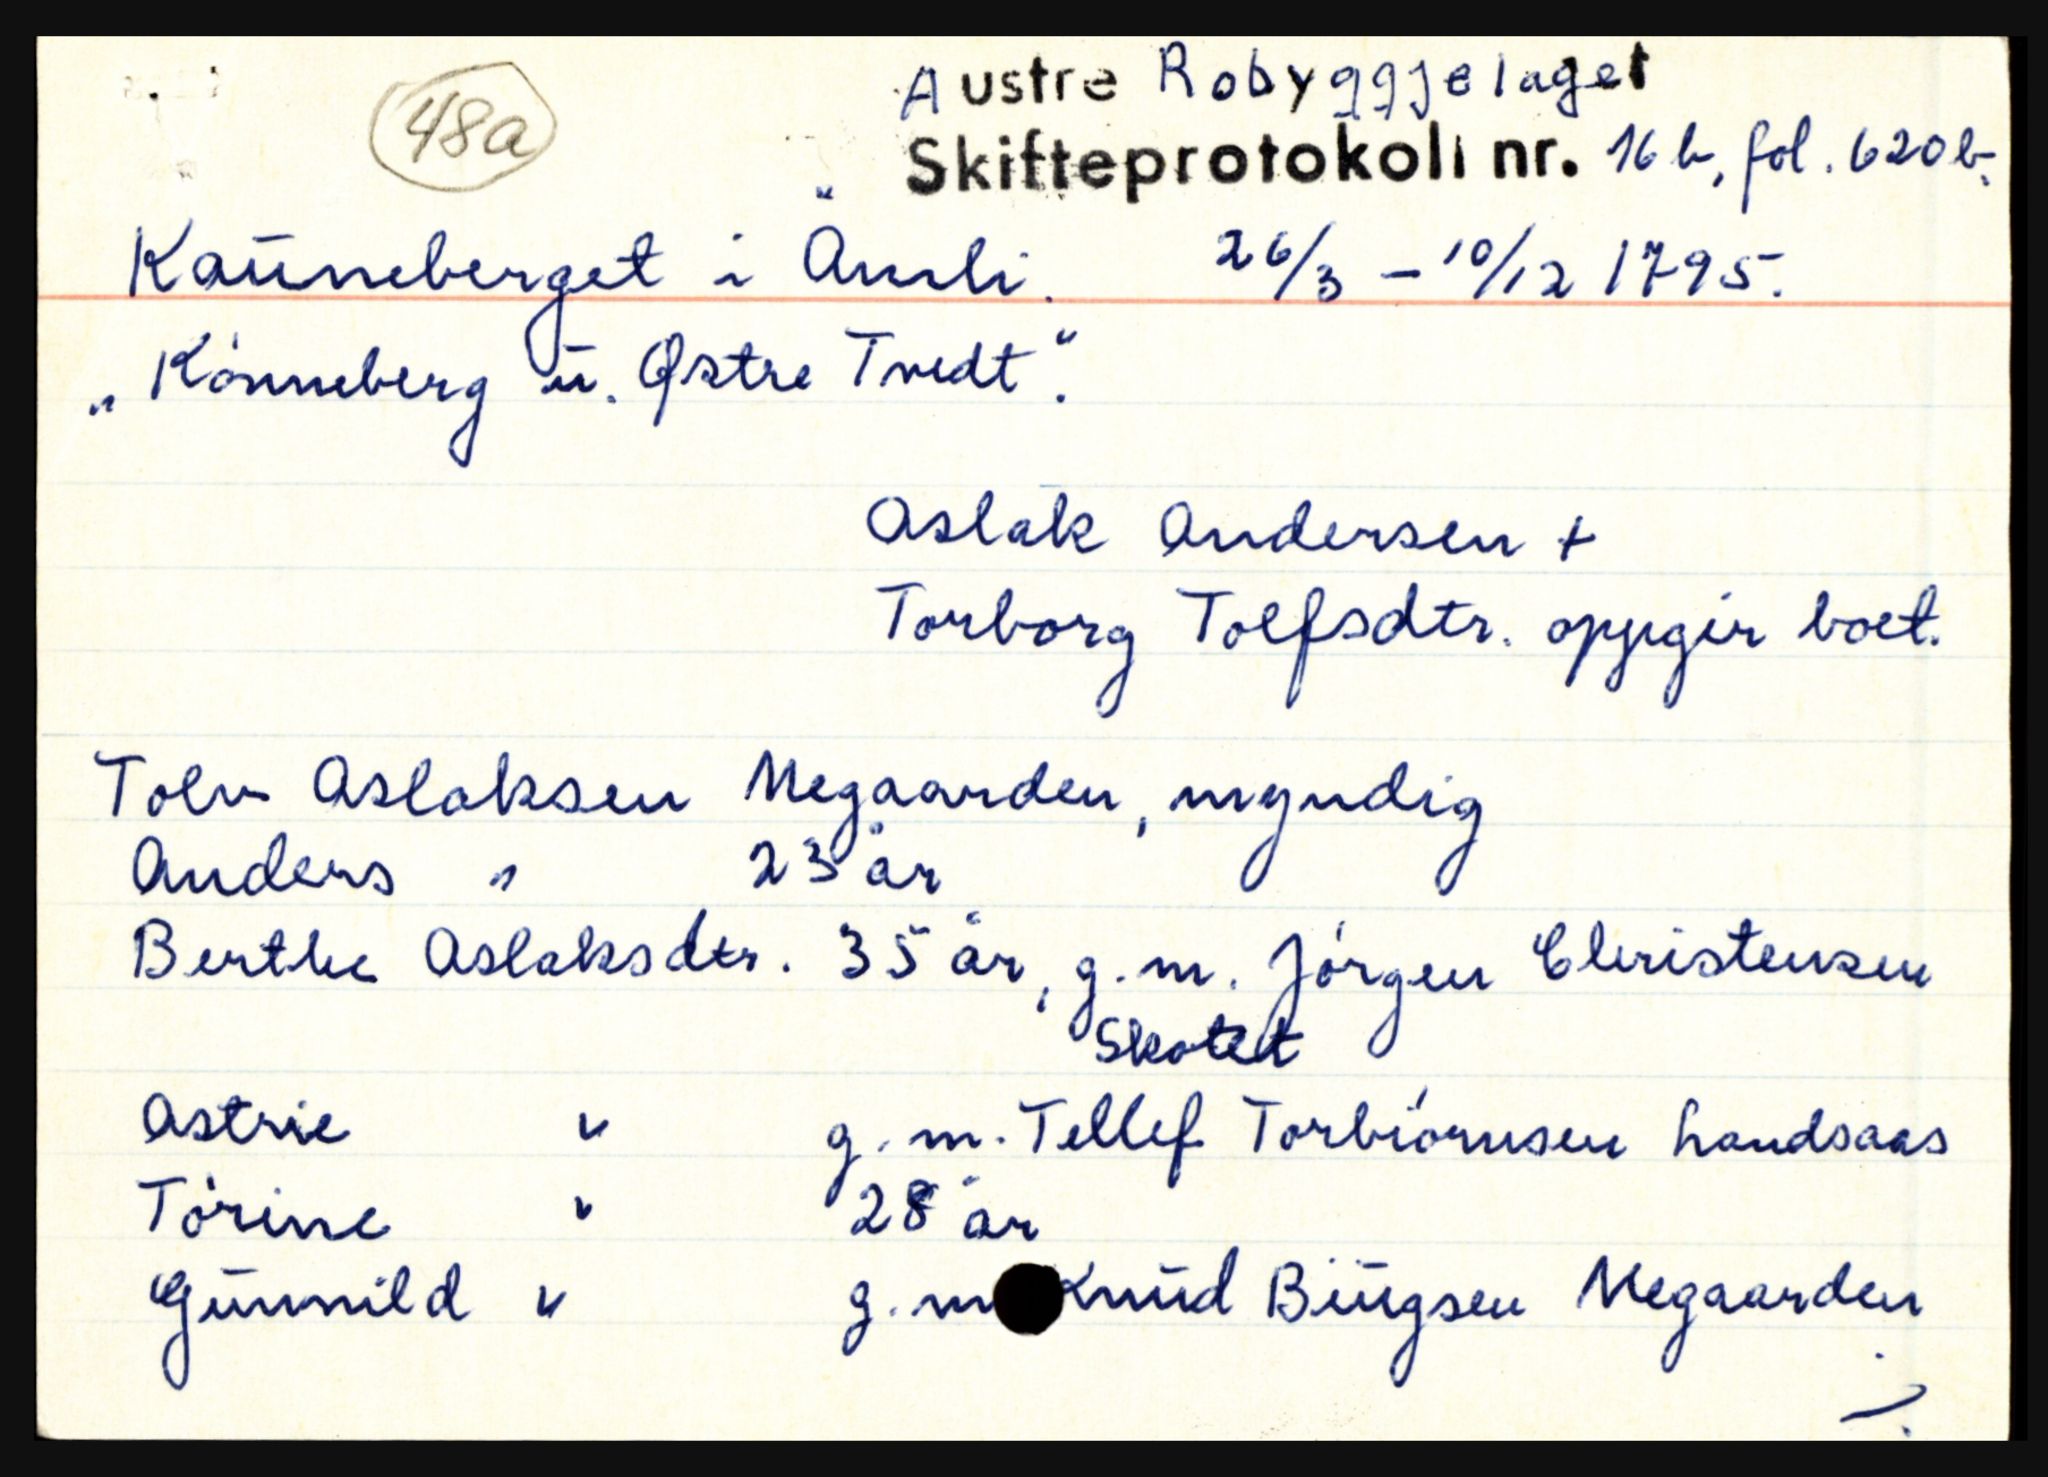 48a
Austre Robyggjelaget
Skifteprotokoll nr. 16 b, fol. 620 b.
Kauneberget i Åmli. 26/3 – 10/12 1795.
"Kónneberg u. Østre Tvedt".
Aslak Andersen +
Torborg Tolfsdtr. oppgir boet.
Tolv Aslaksen Negaarden, myndig
Anders " 23 år
Berthe Aslaksdtr. 35 år, g.m. Jórgen Christensen
Skotet
Astrie " g.m. Tellef Torbiórnsen Landsaas
Tórine " 28 år
Gunnild " g.m. Knud Biugsen Negaarden